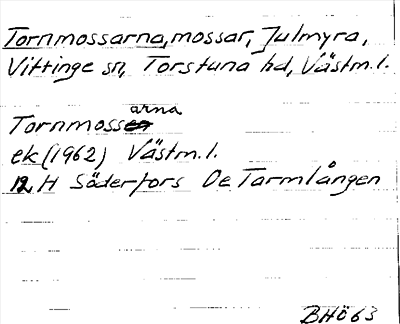 Tornmossarna, mossar, Julmyra,
Vittinge sn, Torstuna hd, Västm. l.
Tornmossarna
ek (1962) Västm. l.
12 H Söderfors De Tarmlången
BHö 63